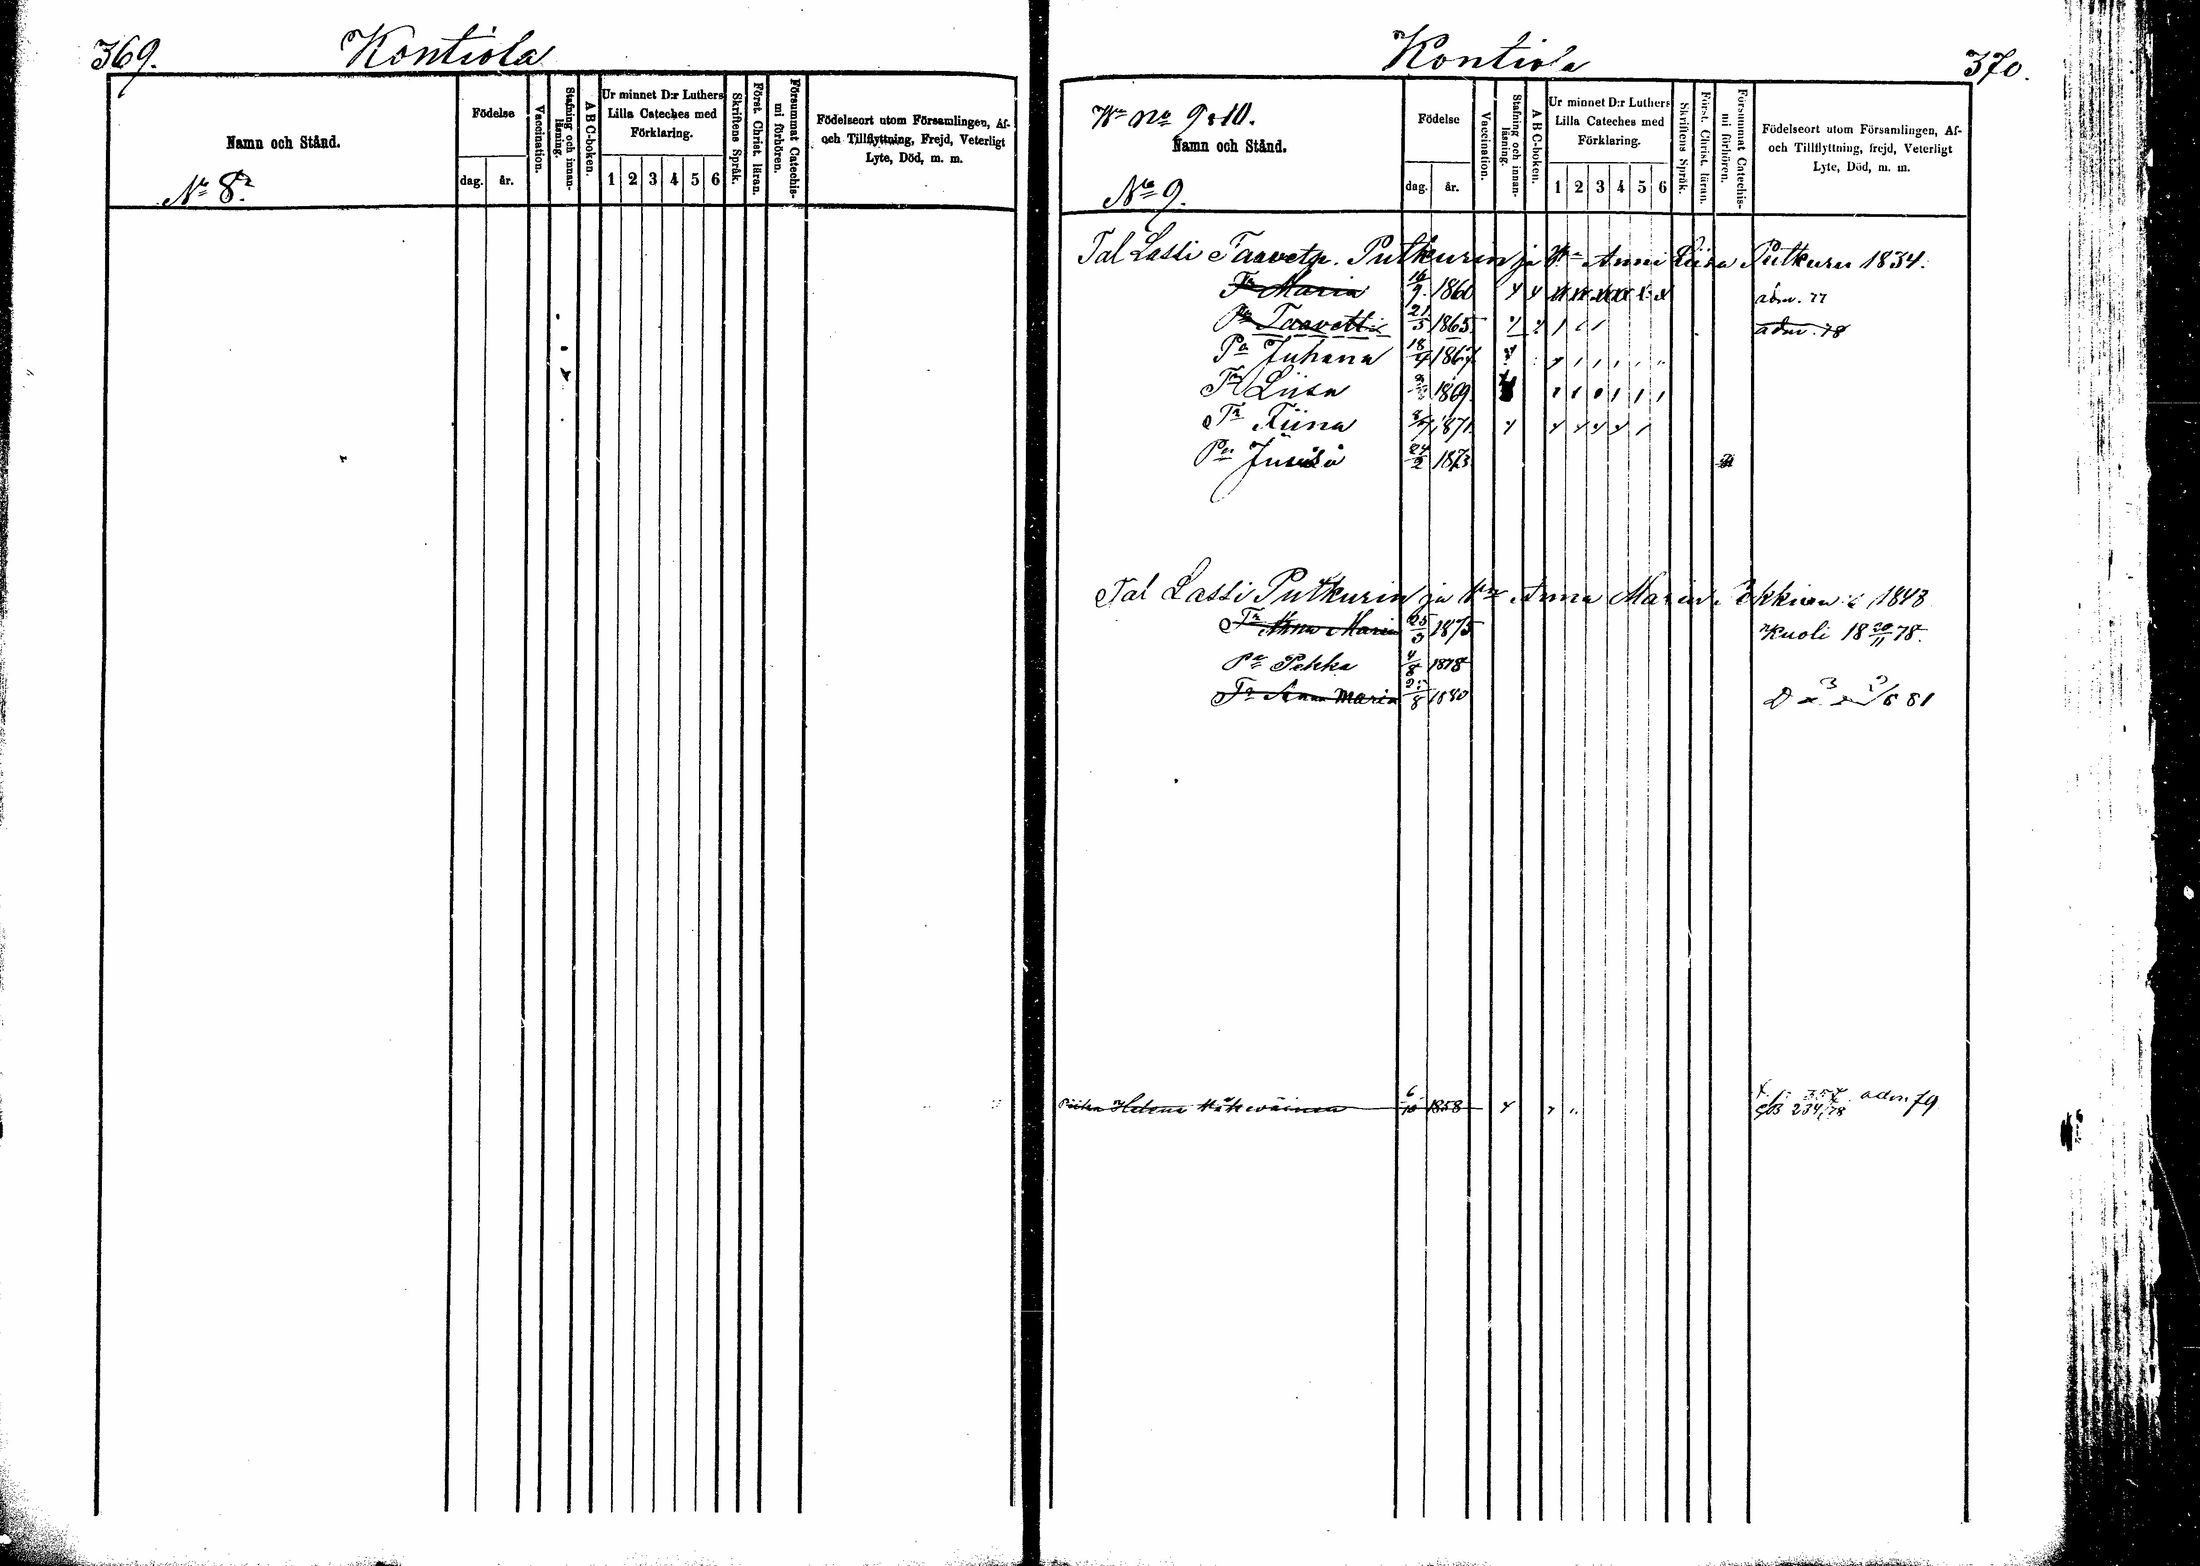 369.
Kontiola
Namn och Stånd.
No 8.
Födelse
dag.
år.
Vaccination.
Stafning och innan-
läsning.
A B C-boken.
Ur minnet D:r Luthers
Lilla Cateches med
Förklaring.
1 2 3 4 5 6
Skriftens Språk.
Först. Christ. läran.
Försummat Catechis-
mi förhören.
Födelseort utom Församlingen, Af-
och Tillflyttning, Frejd, Veterligt
Lyte, Död, m. m.
Kontiola
370.
No 9 & 10.
Namn och Stånd.
No 9.
Födelse
dag.
år.
Vaccination.
Stafning och innan-
läsning.
A B C-boken.
Ur minnet D:r Luthers
Lilla Cateches med
Förklaring.
1 2 3 4 5 6
Skriftens Språk.
Först. Christ. läran.
Försummat Catechis-
mi förhören.
Födelseort utom Församlingen, Af-
och Tillflyttning, frejd, Veterligt
Lyte, Död, m. m.
Tal Lassi Taavetp. Putkurin ja Wn Anni Liisa Putkuru 1834.
Tr Maria 16/9 1860 adm. 77
Pa Taavetti 21/5 1865 adm. 78
Pa Juhana 18/4 1867
Tr Liisa 1869
Tr Tiina 1871
Pa 24/2 1873
Tal Lassi Putkurin ja Wn Anna Maria 1843
Tr Anna Maria 25/3 1875 Kuoli 18 20/11 78.
Pa Pekka 4/8 1878
Tr Anna Maria 8 1880 81
Helena 6/10 1858 357 adm 79
234/78